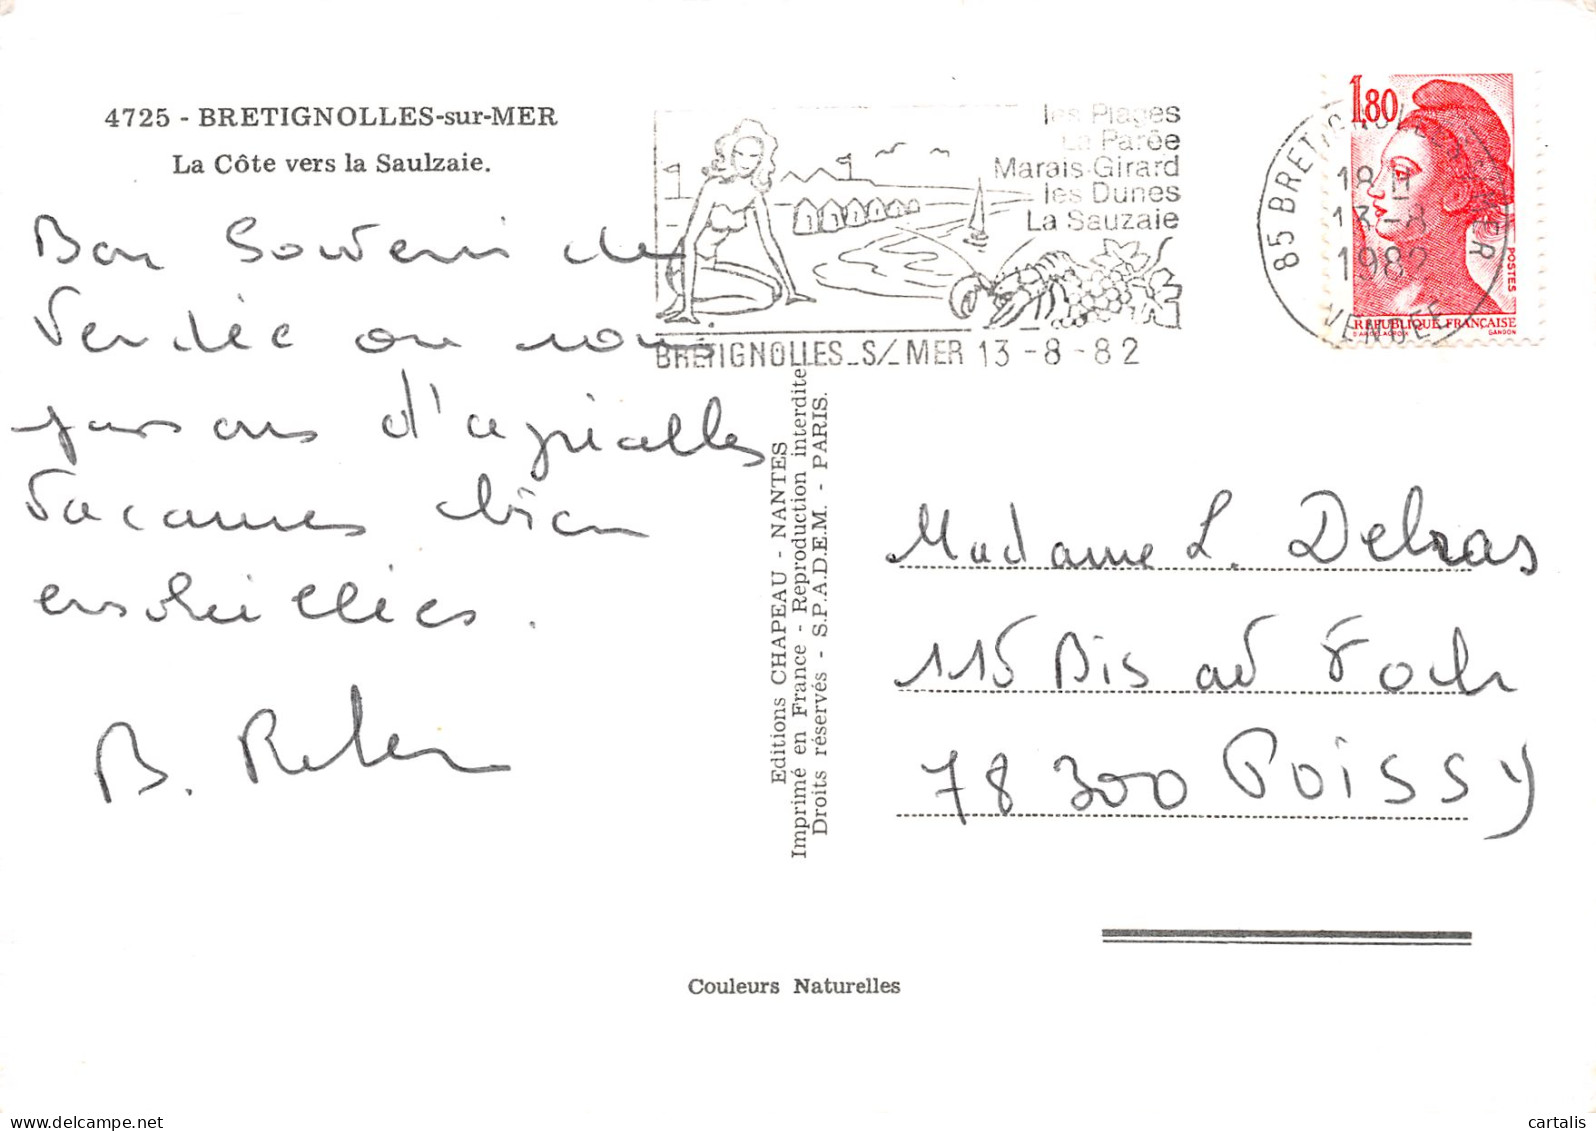 4725 - BRETIGNOLLES-sur-MER
La Côte vers la Saulzaie.
Bon Souvenir de
Vendée ou nous
passons d'agréables
Vacances bien
ensoleillées.
B.
les Plages
La Parée
Marais-Girard
les Dunes
La Sauzaie
BRETIGNOLLES_S/_MER 13-8-82
85 BRETIGNOLLES S MER
18 H
13-8
1982
VENDEE
1,80
POSTES
REPUBLIQUE FRANÇAISE
D'APRES DELACROIX GANDON
Editions CHAPEAU - NANTES
Imprimé en France - Reproduction interdite
Droits réservés - S.P.A.D.E.M. - PARIS.
Madame L. Delras
115 Bis av Foch
78300 Poissy
Couleurs Naturelles
cartalis
delcampe.net